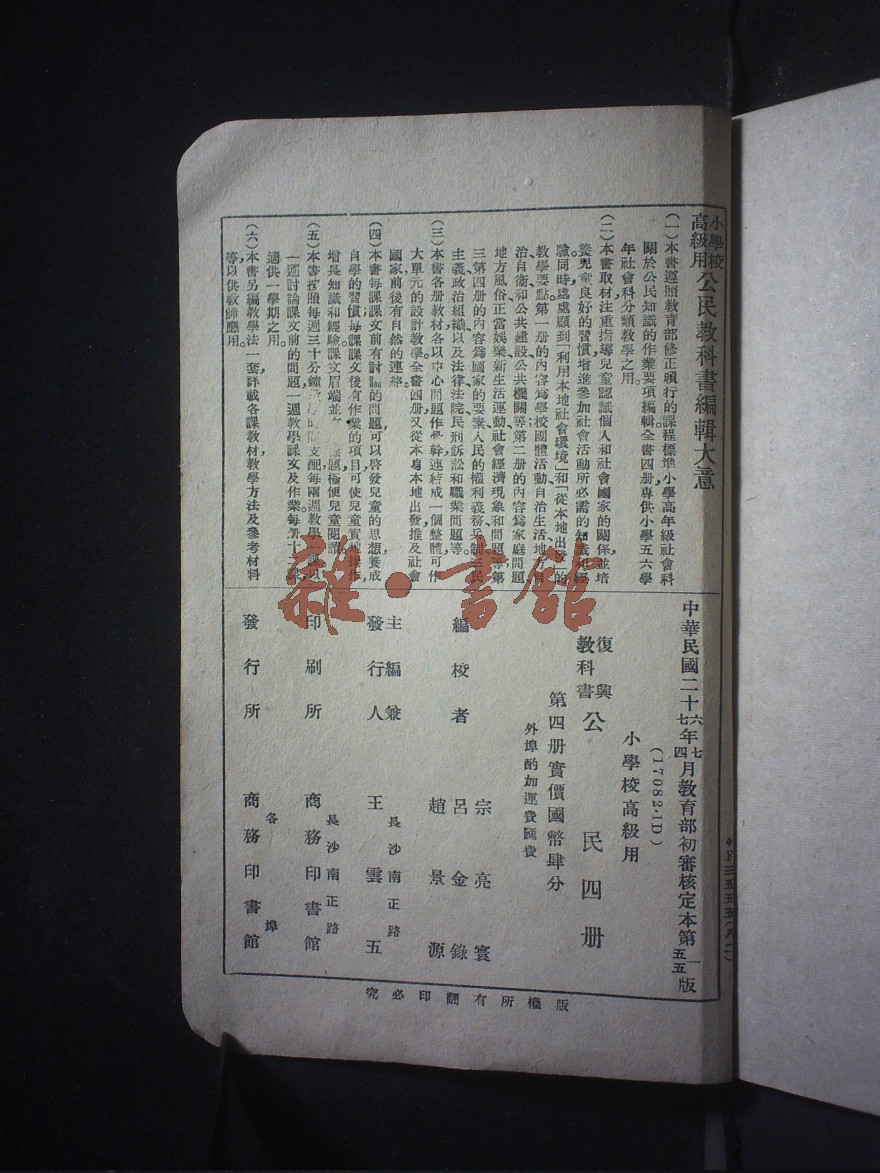 小學校
高級用
公民教科書編輯大意
(一)本書遵照教育部修正頒行的課程標準小學高年級社會科
關於公民知識的作業要項編輯全書四册專供小學五六學
年社會科分類教學之用。
(二)本書取材注重指導兒童認識個人和社會國家的關係並培
養兒童良好的習慣增進參加社會活動所必需的知識和經
驗同時處處顧到「利用本地社會環境」和「從本地出發」的
教學要點。第一册的內容爲學校團體活動、自治生活、地方自
治自衛和公共建設公共機關等第二册的內容爲家庭問題、
地方風俗正當娛樂新生活運動社會經濟現象和問題等第
三第四册的內容爲國家的要素人民的權利義務兵制三民
主義政治組織以及法律法院民刑訴訟和職業問題等。
(三)本書各册教材各以中心問題作骨幹連結成一個整體可作
大單元的設計教學。全書四册又從本身本地出發推及社會
國家前後有自然的連絡。
(四)本書每課課文前有討論的問題可以啓發兒童的思想養成
自學的習慣每課課文後有作業的項目可使兒童實地操作
增長知識和經驗課文眉端並 題極便兒童閱讀。
(五)本書按照每週三十分鐘 時間支配每兩週教學 課以
一週討論課文前的問題一週教學課文及作業每册十 課
適供一學期之用。
(六)本書另編教學法一套詳載各課教材教學方法及參考材料
等以供教師應用。
中華民國二十六年七月教育部初審核定本第一版
七 四 五五
(17082·1D)
小學校高級用
復興
教科書
公民四册
第四册實價國幣肆分
外埠酌加運費匯費
編校者
宗亮寰
呂金錄
趙景源
主編兼
發行人
長沙南正路
王雲五
印刷所
長沙南正路
商務印書館
發行所
各埠
商務印書館
版權所有翻印必究
雜·書館